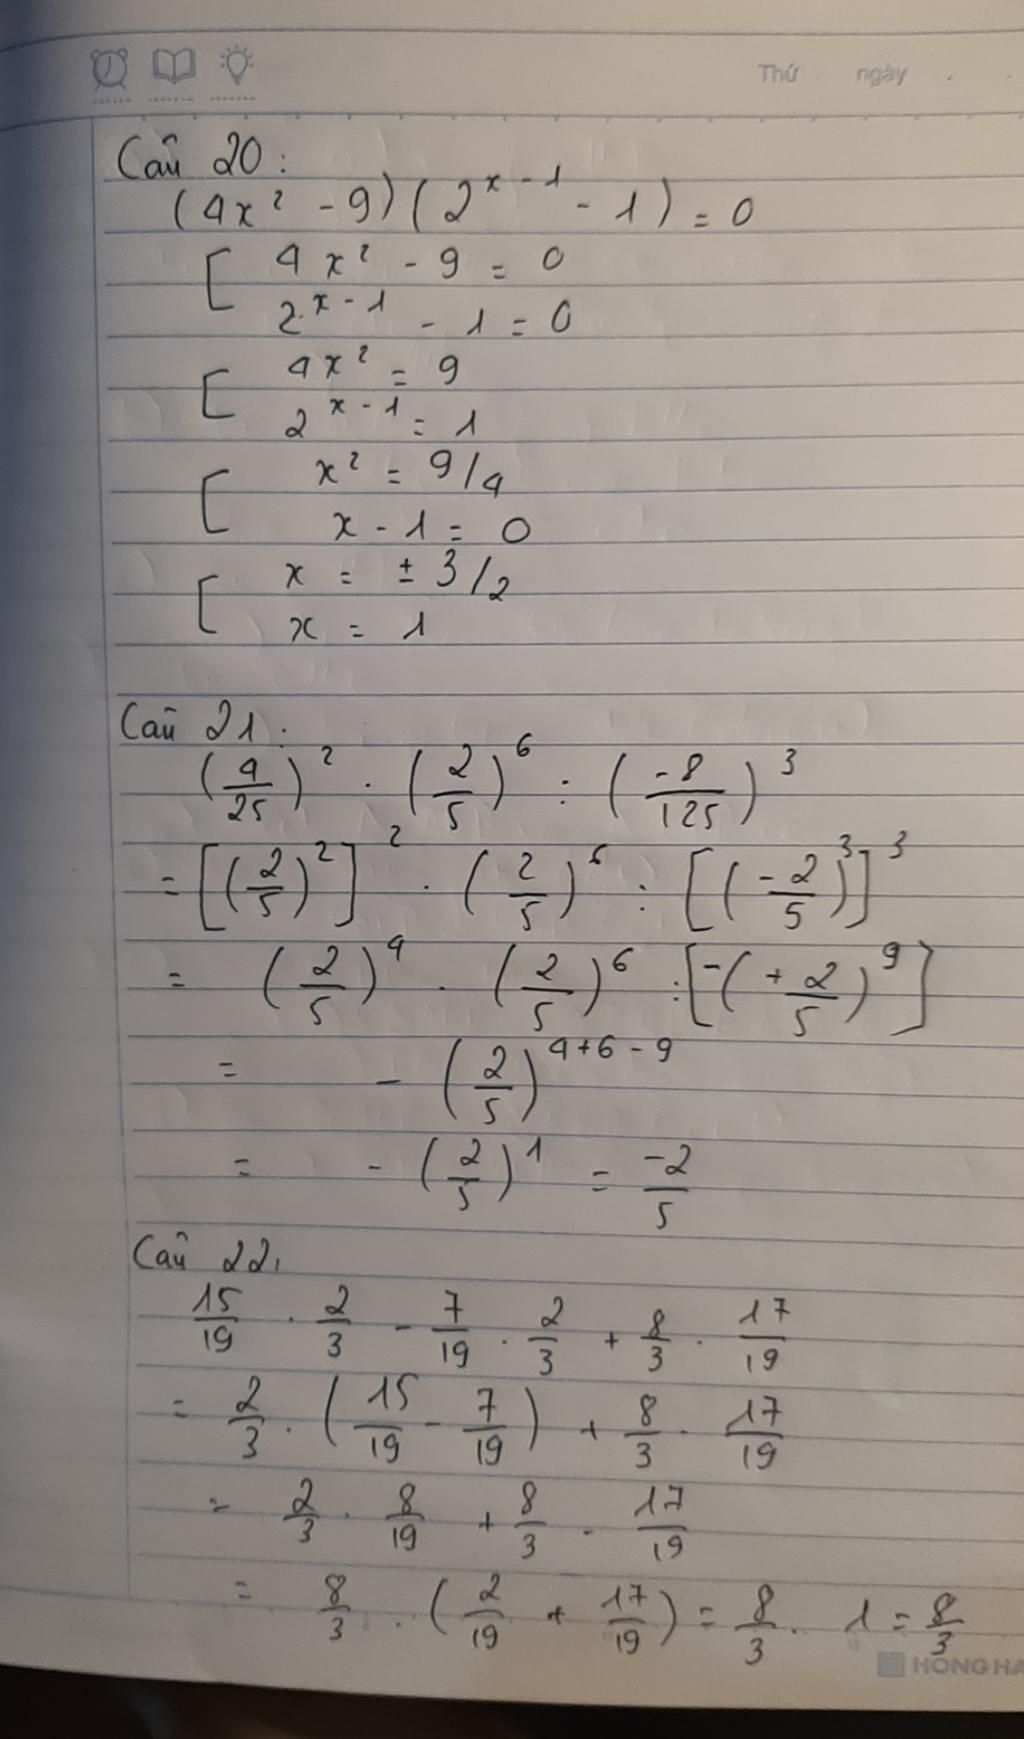 Thứ ngày
Câu 20:
(4x² - 9)(2^{x-1} - 1) = 0
[ 4x² - 9 = 0
2^{x-1} - 1 = 0
[ 4x² = 9
2^{x-1} = 1
[ x² = 9/4
x - 1 = 0
[ x = ± 3/2
x = 1
Câu 21:
(4/25)² . (2/5)⁶ : (-8/125)³
= [(2/5)²]² . (2/5)⁶ : [(-2/5)³]³
= (2/5)⁴ . (2/5)⁶ : [-(+2/5)⁹]
= - (2/5)^{4+6-9}
= - (2/5)¹ = -2/5
Câu 22:
15/19 . 2/3 - 7/19 . 2/3 + 8/3 . 17/19
= 2/3 . (15/19 - 7/19) + 8/3 . 17/19
= 2/3 . 8/19 + 8/3 . 17/19
= 8/3 . (2/19 + 17/19) = 8/3 . 1 = 8/3
HONG HA